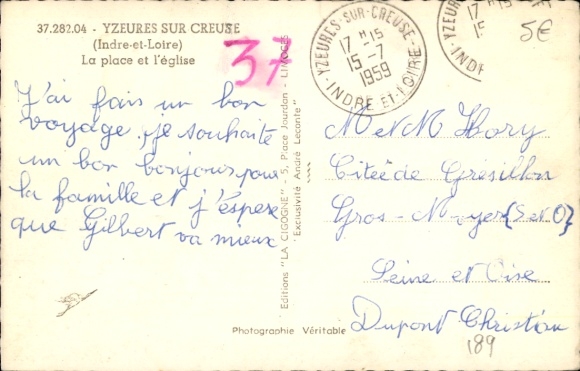 37.282.04 - YZEURES SUR CREUSE
(Indre-et-Loire)
La place et l'église
37
YZEURES-SUR-CREUSE
17 H 15
15 - 7
1959
INDRE-ET-LOIRE
5€
J'ai fais un bon
voyage, je souhaite
un bon bonjour pour
la famille et j'espere
que Gilbert va mieux
Editions "LA CIGOGNE" - 5, Place Jourdan - LIMOGES
"Exclusivité André Leconte"
M et M Hory
Citée de Grésillon
Gros-Noyer (S et O)
Seine et Oise
Dupont Christian
189
Photographie Véritable